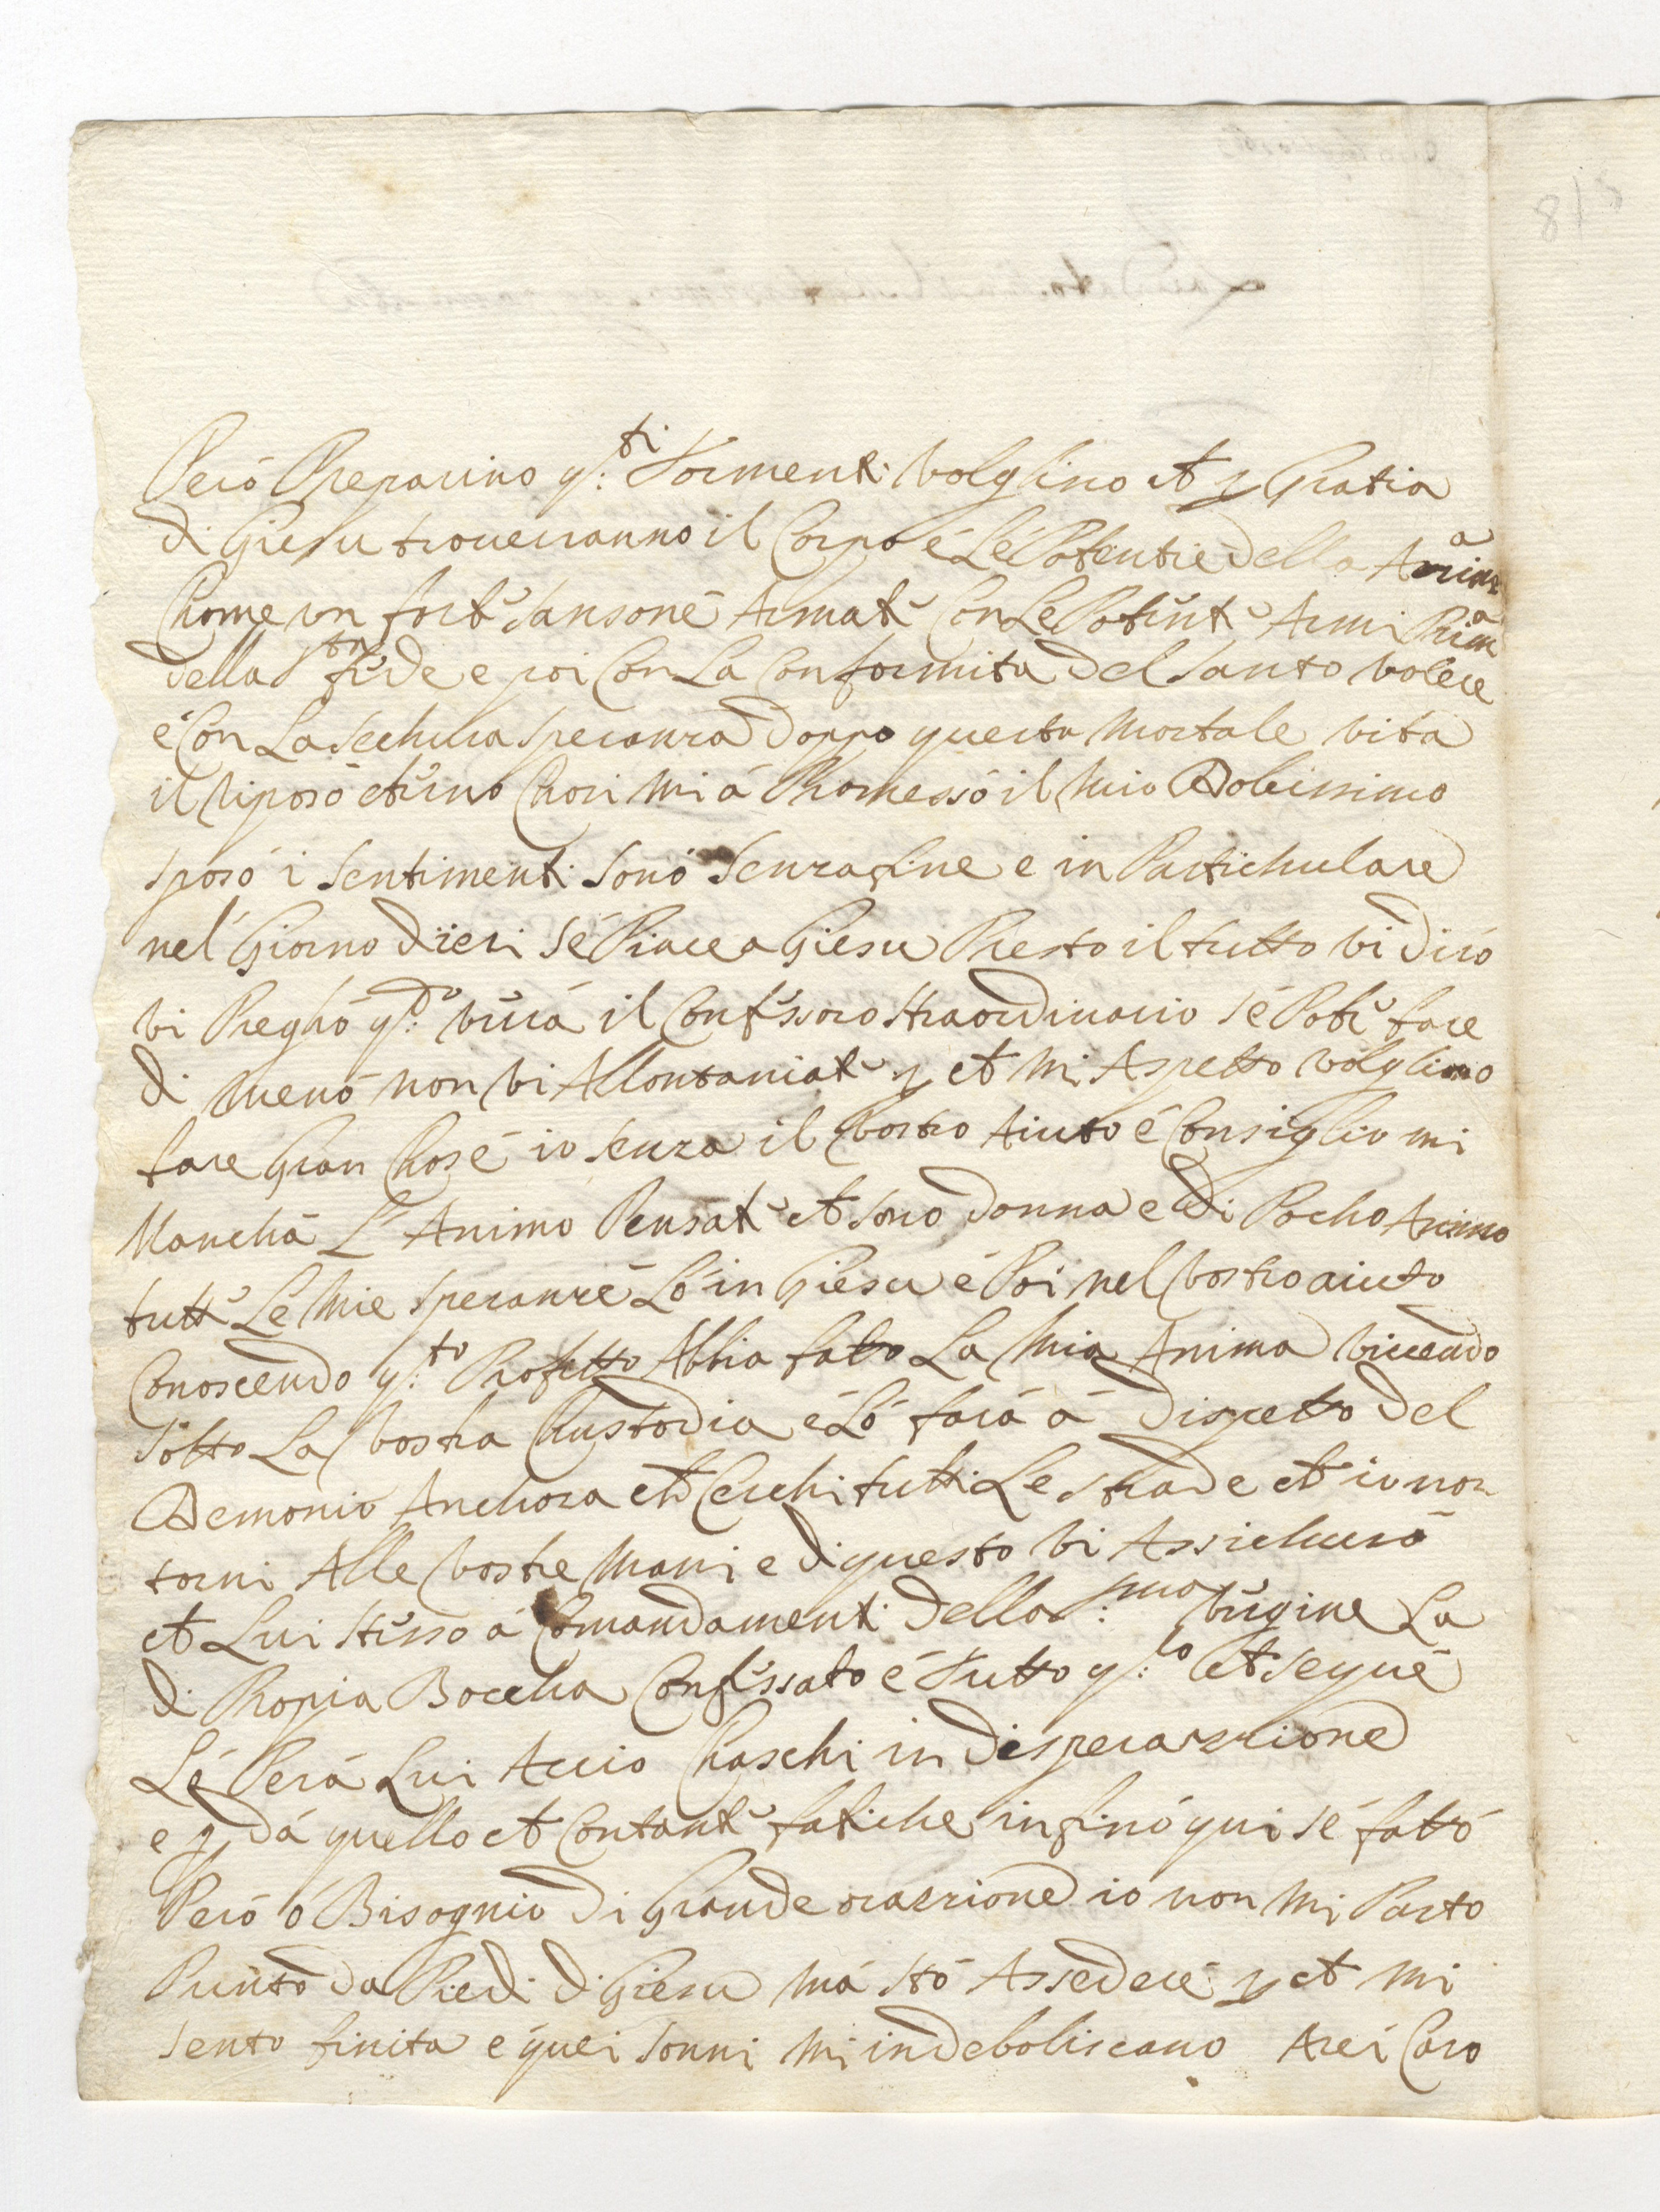 Però Preparino q.sti Tormenti Volglino et p Gratia
di Giesu troueranno il Corpo é Lé Potentie della Anima
Chome un forte Sansoné Armate Con Le Potente Armi Prima
della S.ta fede e poi Con La Conformita del Santo volere
é Con La Sechura Speranza doppo questa Mortale vita
il riposó eterno Chosi Mi á Promessó il Mio Dolcissimo
Sposó i Sentimenti Sonó Senza fine e in Partichulare
nel Giorno d'ieri Sé Piace a Giesu Presto il tutto vi diró
vi Preghó q.do verá il Confessoro Straordinario Sé Pote fare
di menó non vi Allontaniate p et Mi Aspetto volglino
fare Gran Chosé io Senza il Vostro Aiuto é Consiglio mi
Manchá L'Animo Pensate et Sono donna e di Pocho Animo
tutte Lé Mie Speranzé Ló in Giesu é Poi nel Vostro aiuto
Conoscendo q.to Profetto Abbia fatto La Mia Anima vivendo
Sotto La Vostra Chustodia é Ló fará á dispetto del
Demonio Anchora et Cerchi tutti Le Strade et io non
torni Alle Vostre Mani e di questo vi Assichuró
et Lui Stesso á Comandamenti della S.ma Vergine La
di Propia Boccha Confessato é Tutto q.lo et Segué
Lé Perá Lui Acció Chaschi in disperazzione
e p dá quello et Contante fatiche infinó qui Sé fattó
Peró ó Bisognio di Grande orazzione io non Mi Parto
Puntó da Piedi di Giesu Má Stó Assederé p et Mi
Sento finita é quei Sonni Mi indeboliscano Arei Caro